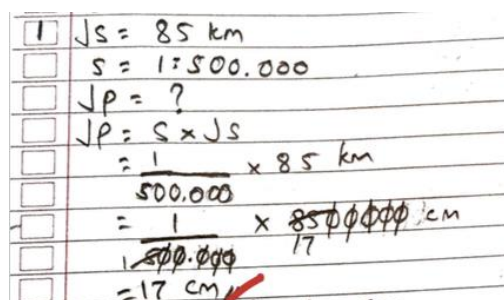 1 JS = 85 km
S = 1:500.000
JP = ?
JP = S x JS
= 1/500.000 x 85 km
= 1/500.000 x 8500000 cm
1 17
= 17 cm